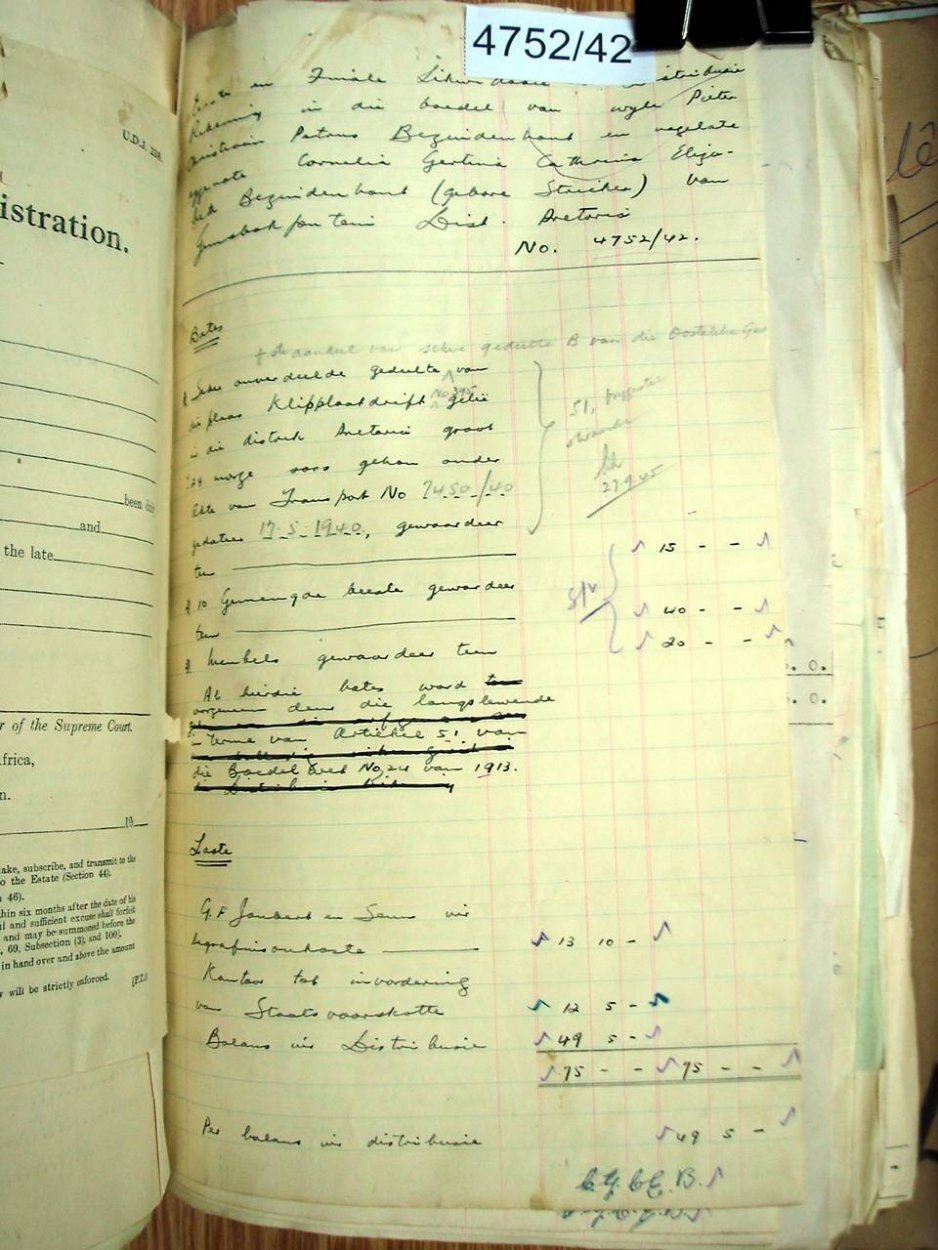 4752/42
U.D.J.
istration.
been
and
the late
r of the Supreme Court.
frica,
n.
19
ake, subscribe, and transmit to the
o the Estate (Section 44).
46).
thin six months after the date of his
l and sufficient excuse shall forfeit
and may be summoned before the
, 69, Subsection (3), and 100].
in hand over and above the amount
y will be strictly enforced.
en Finale Likwidasie distribusie
Rekening in die boedel van wyle Pieter
Christiaan Petrus Bezuidenhout en nagelate
eggenote Cornelia Gertina Cathrina Eliza-
beth Bezuidenhout (gebore Stricker) van
Gemsbokfontein Dist. Pretoria
No. 4752/42.
Bates
aandeel van sekere gedeelte B van die Oostelike Ged
Sekere onverdeelde gedeelte van
die plaas Klipplaatdrift geleë
in die distrik Pretoria groot
morge soos gehou onder
Akte van Transport No 7450/40
gedateer 17.5.1940, gewaardeer
ten 15 - -
51,
27 9 45
10 Gemengde beeste gewaardeer
ten 40 - -
Meubels gewaardeer teen 20 - -
Al hierdie bates word
oorgeneem deur die langslewende
in terme van Artiekel 51 van
die Boedel Wet No 24 van 1913.
Laste
G.F. Joubert en Seun vir
begrafnisonkoste 13 10 -
Kantoor tot invordering
van Staatsvoorskotte 12 5 -
Balans vir Distribusie 49 5 -
75 - - 75 - -
Per balans vir distribusie 49 5 -
. 0.
. 0.